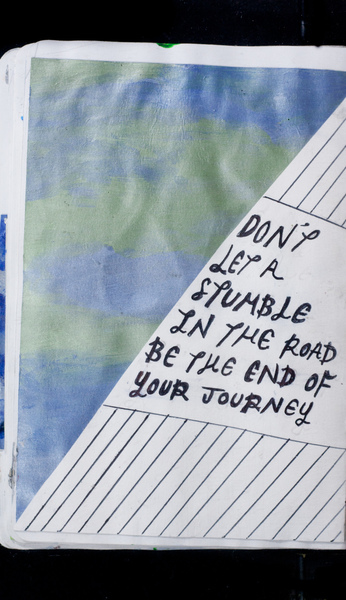 DON'T
LET A
STUMBLE
IN THE ROAD
BE THE END OF
YOUR JOURNEY